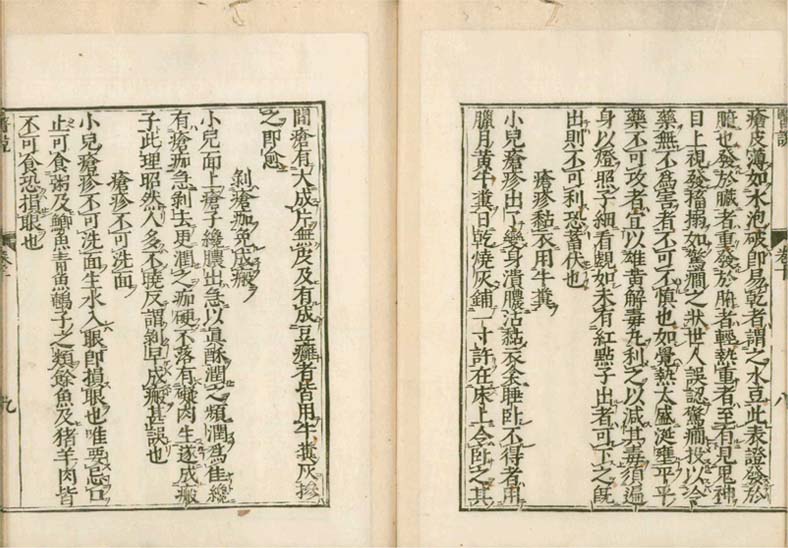 瘡皮薄如水泡破即易乾者謂之水豆此表證發於
腑也發於臟者重發於腑者輕熱重者至有見鬼神
目上視發搐搦如驚癎之狀世人誤認驚癎投以冷
藥無不爲害者不可不慎也如覺熱太盛涎壅平平
藥不可攻者宜以雄黃解毒丸利之以減其毒須遍
身以燈照子細看覷如未有紅點子出者可下之既
出則不可利恐畜伏也
瘡疹黏衣用牛糞
小兒瘡疹出了變身潰膿沾黏衣衾睡臥不得者用
臘月黃牛糞日乾燒灰鋪一寸許在床上令臥之其
醫説
卷十
八
間瘡有大成片無皮及有成豆癰者皆用牛糞灰摻
之即愈
剝瘡痂免成瘢
小兒面上瘡子纔膿出急以真酥潤之頻潤爲佳纔
有瘡痂急剝去更潤之痂硬不落有礙肉生遂成瘢
子此理昭然人多不曉反謂剝早成瘢甚誤也
瘡疹不可洗面
小兒瘡疹不可洗面生水入眼即損眼也唯要忌口
止可食粥及鯽魚青魚鵓子之類餘魚及猪羊肉皆
不可食恐損眼也
醫説
卷十
九